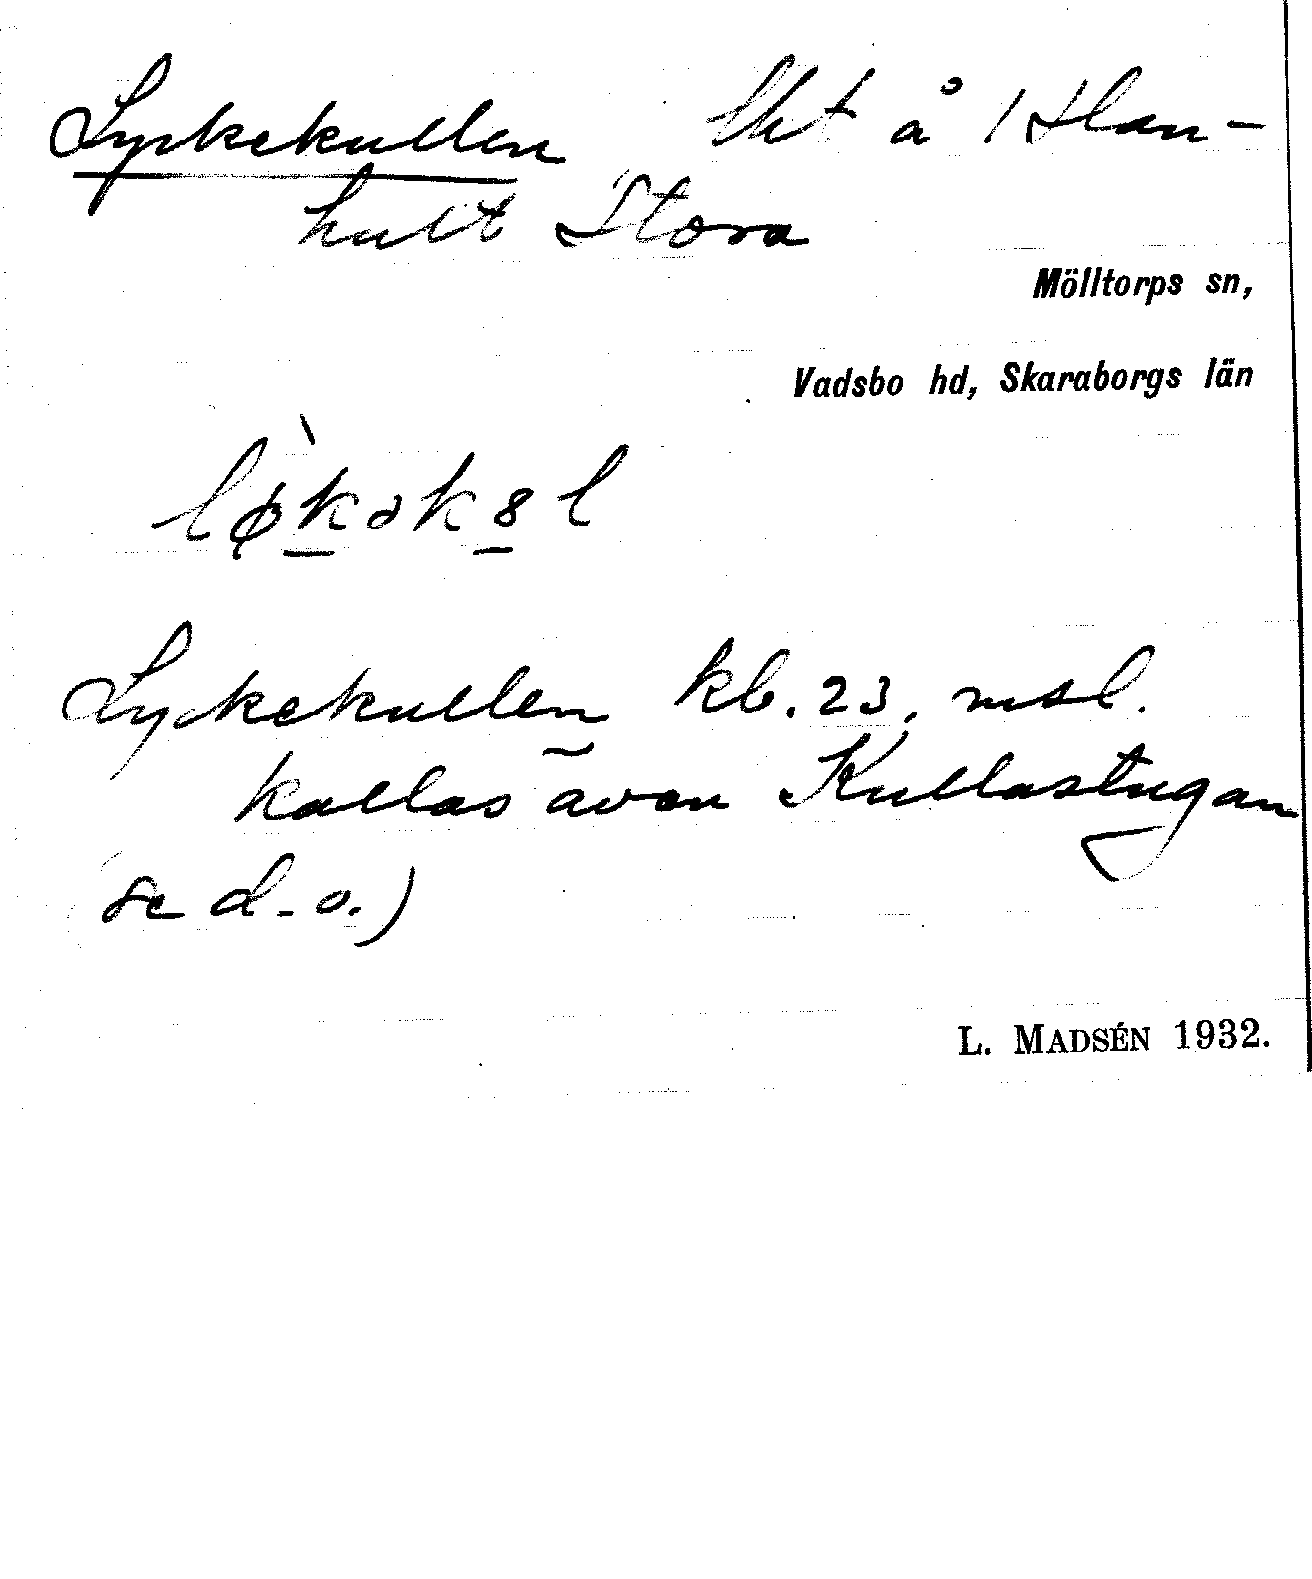 Lyckekullen lht å 1 Han-
hult Stora
Mölltorps sn,
Vadsbo hd, Skaraborgs län
lø̀kəkȣl
Lyckekullen kb. 23, msl.
kallas även Kullastugan
se d.o.)
L. MADSÉN 1932.